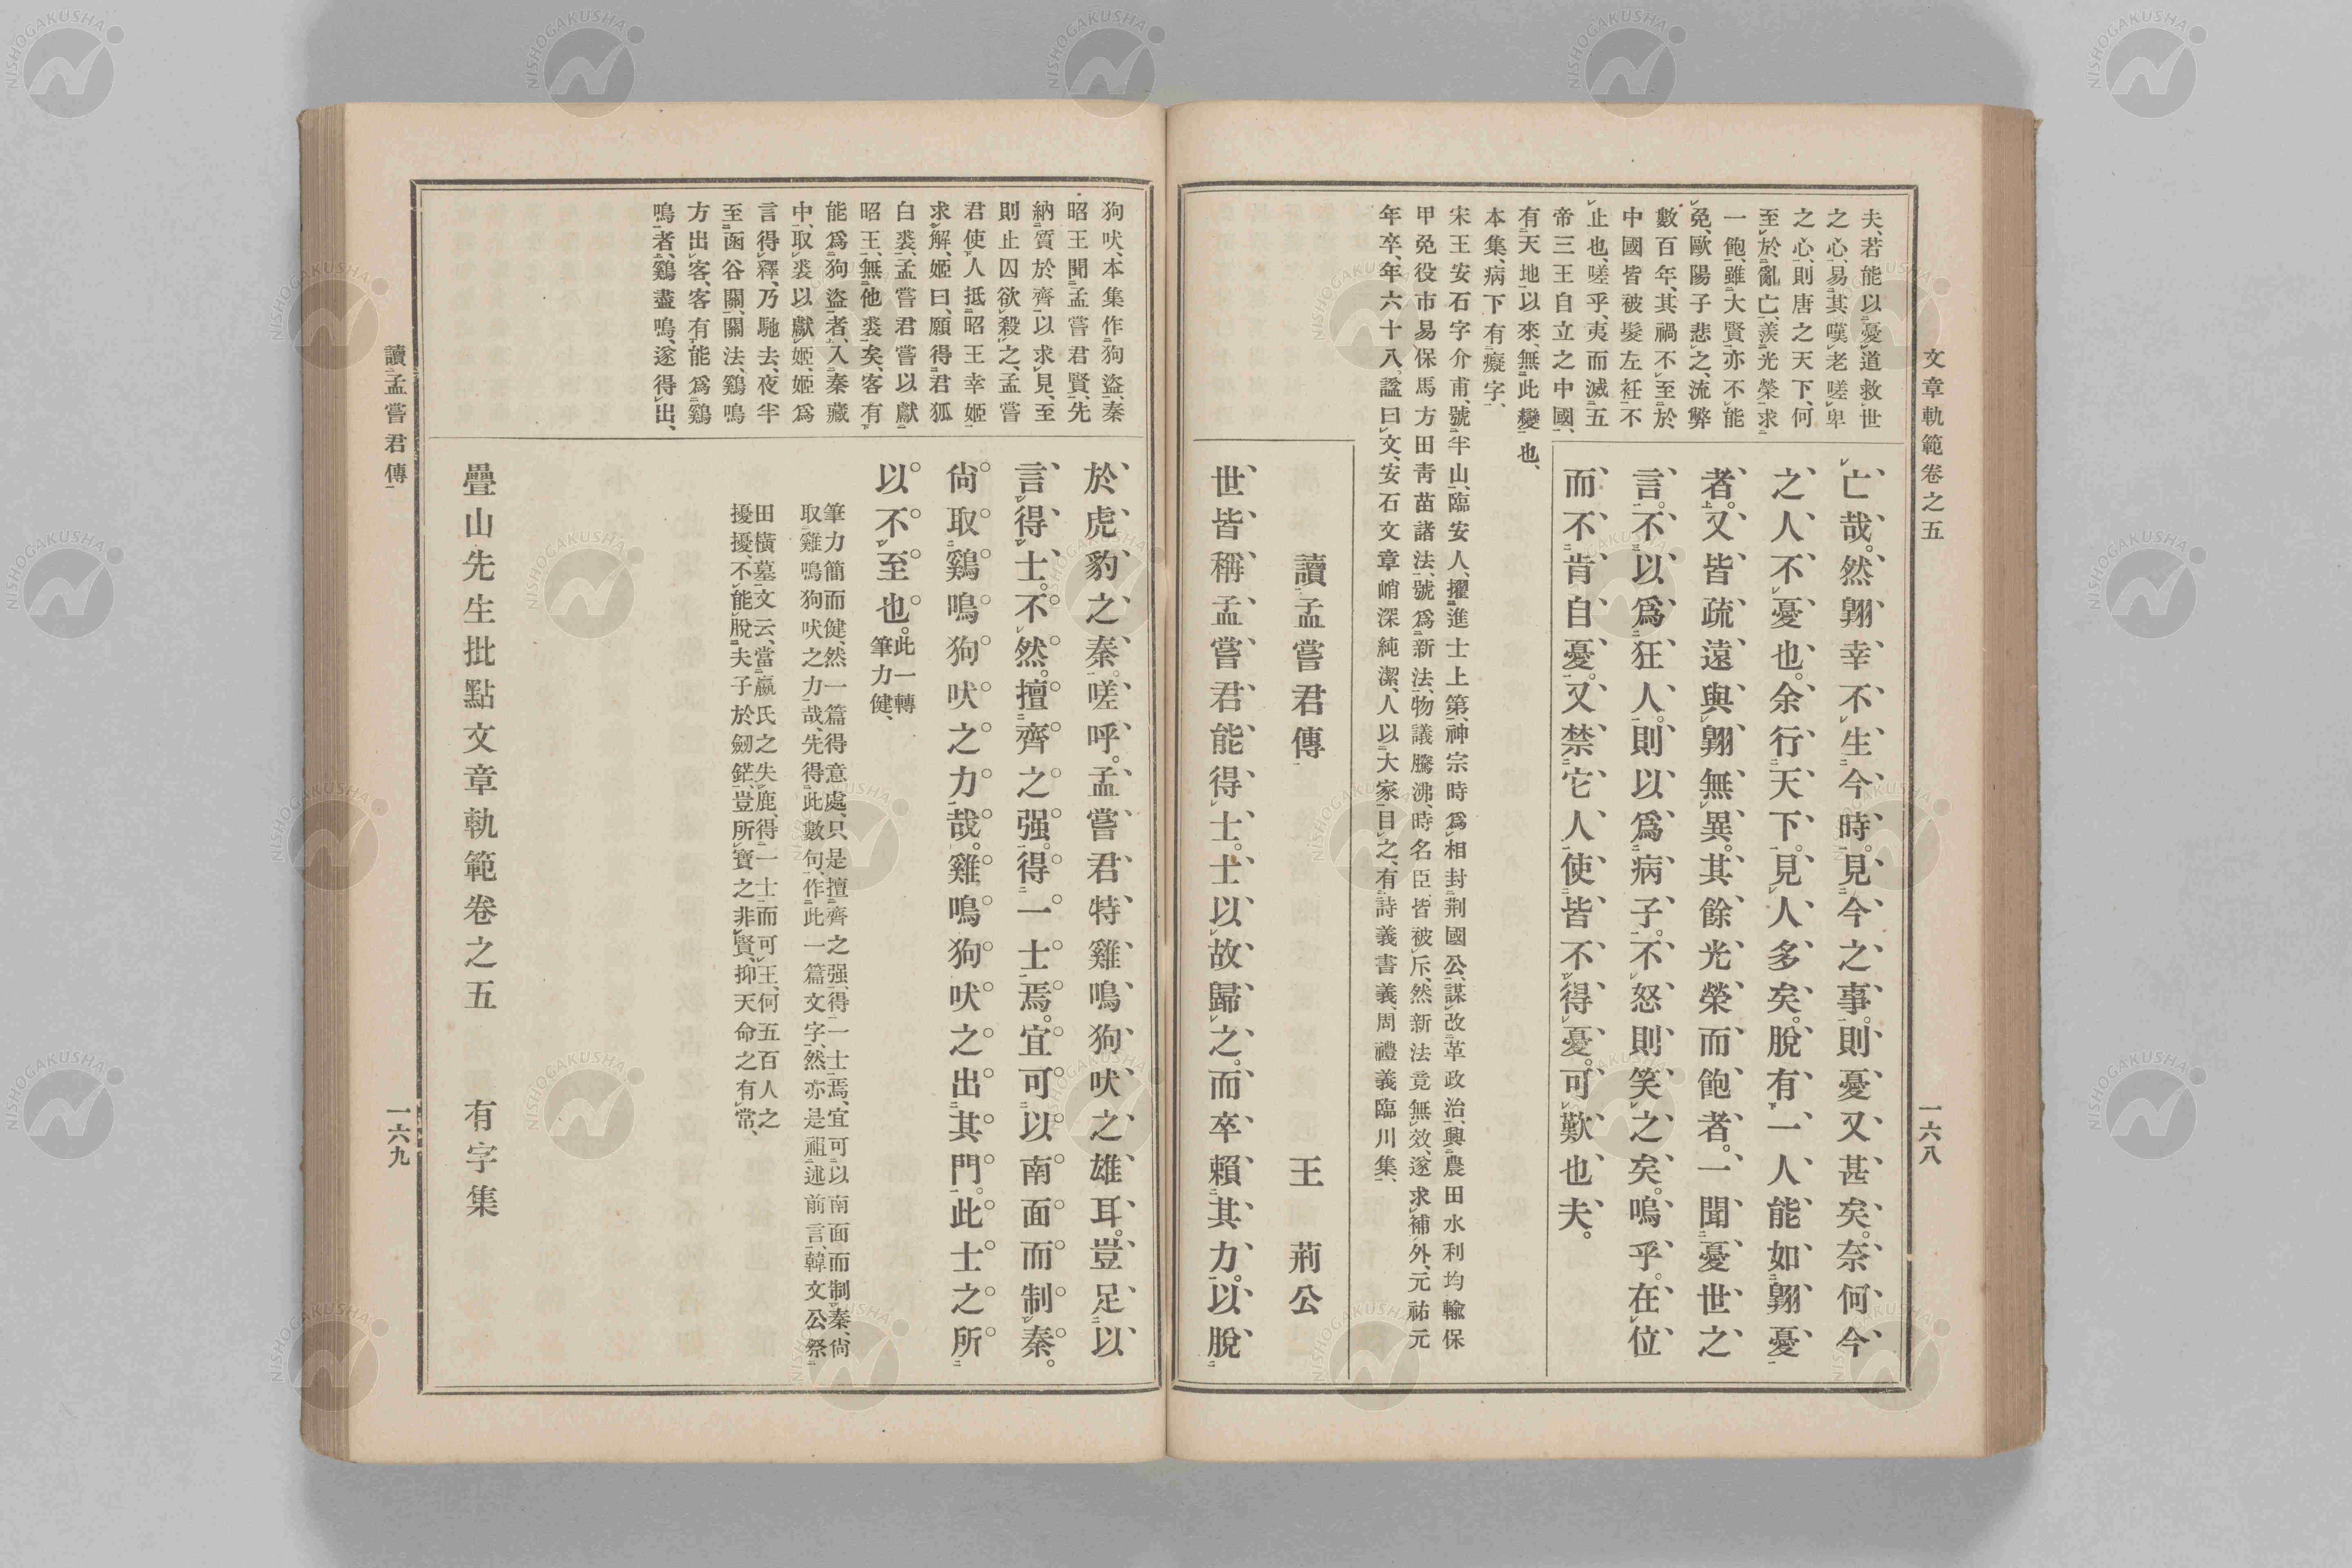 文章軌範卷之五
一六八
夫、若能以憂道救世
之心、易其嘆老嗟卑
之心、則唐之天下、何
至於亂亡、羨光榮求
一飽、雖大賢亦不能
免、歐陽子悲之、流弊
數百年、其禍不至於
中國皆被髮左衽不
止也、嗟乎、夷而滅五
帝三王自立之中國、
有天地以來、無此變也、
本集、病下有癡字、
亡哉。然翺幸不生今時。見今之事。則憂又甚矣。奈何今
之人不憂也。余行天下。見人多矣。脫有一人能如翺憂
者。又皆疏遠與翺無異。其餘光榮而飽者。一聞憂世之
言。不以爲狂人。則以爲病子。不怒則笑之矣。嗚乎。在位
而不肯自憂。又禁它人使皆不得憂。可歎也夫。
宋王安石字介甫、號半山、臨安人、擢進士上第、神宗時爲相封荊國公、謀改革政治、興農田水利均輸保
甲免役市易保馬方田靑苗諸法、號爲新法、物議騰沸、時名臣、皆被斥、然新法竟無效、遂求補外、元祐元
年卒、年六十八、諡曰文、安石文章峭深純潔、人以大家目之、有詩義書義、周禮義臨川集、
讀孟嘗君傳 王荊公
世皆稱孟嘗君能得士。士以故歸之。而卒賴其力。以脫
讀孟嘗君傳
一六九
狗吠、本集作狗盜、秦
昭王聞孟嘗君賢、先
納質於齊、以求見、至
則止囚欲殺之、孟嘗
君使人抵昭王幸姬
求解、姬曰、願得君狐
白裘、孟嘗君嘗以獻
昭王、無他裘矣、客有
能爲狗盜者、入秦藏
中、取裘以獻姬、姬爲
言得釋、乃馳去、夜半
至函谷關、關法、鷄鳴
方出客、客有能爲鷄
鳴者、鷄盡鳴、遂得出、
於虎豹之秦。嗟呼。孟嘗君特雞鳴狗吠之雄耳。豈足以
言得士。不然。擅齊之强。得一士焉。宜可以南面而制秦。
尙取鷄鳴狗吠之力哉。雞鳴狗吠之出其門。此士之所
以不至也。此一轉
筆力健、
筆力簡而健、然一篇得意處、只是擅齊之强、得一士焉、宜可以南面而制秦、尙
取雞鳴狗吠之力哉、先得此數句、作此一篇文字、然亦是祖述前言、韓文公祭
田橫墓文云、當嬴氏之失鹿、得一士而可王、何五百人之
擾擾、不能脫夫子於劒鋩、豈所寶之非賢、抑天命之有常、
疊山先生批點文章軌範卷之五 有字集
NISHOGAKUSHA